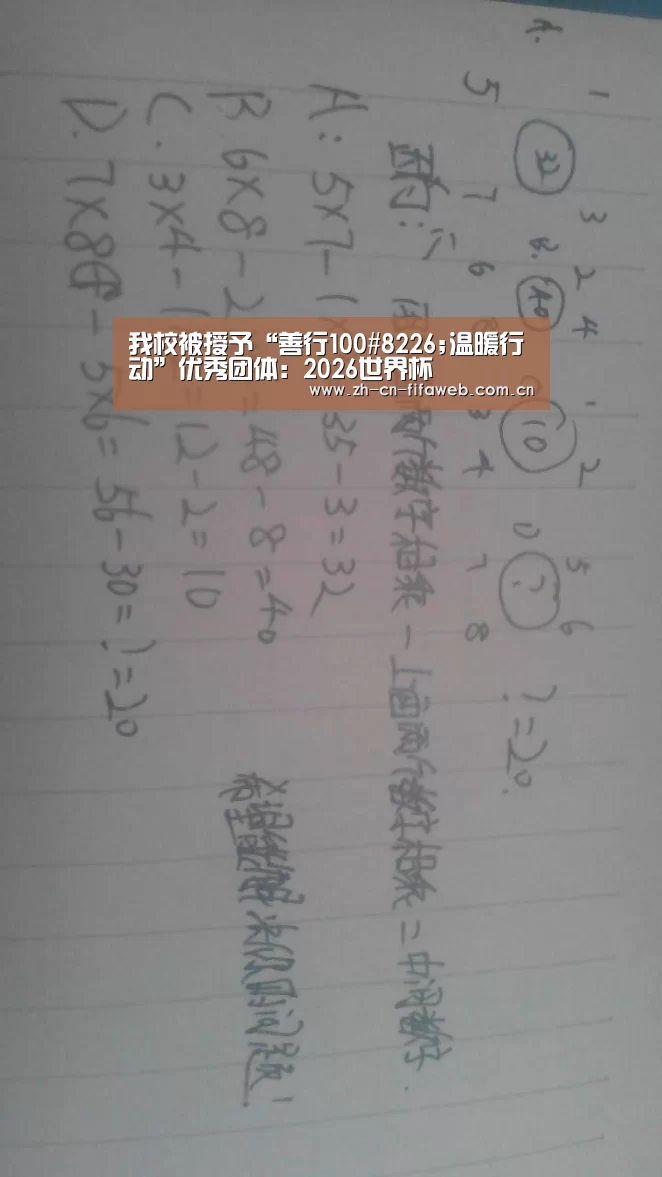 我校被授予“善行100#8226;温暖行
动”优秀团体：2026世界杯
www.zh-cn-fifaweb.com.cn
1 3 2 4 1 2 5 6
A. 32 B. 40 10 D ? ?=20.
5 7 6 3 4 7 8
两个数字相乘－上面两个数字相乘＝中间数字.
A: 5×7-1 35-3=32
B 6×8-2 =48-8=40
C. 3×4-1 =12-2=10
D. 7×8 - 5×6=56-30=?=20
希望能解决你的问题!